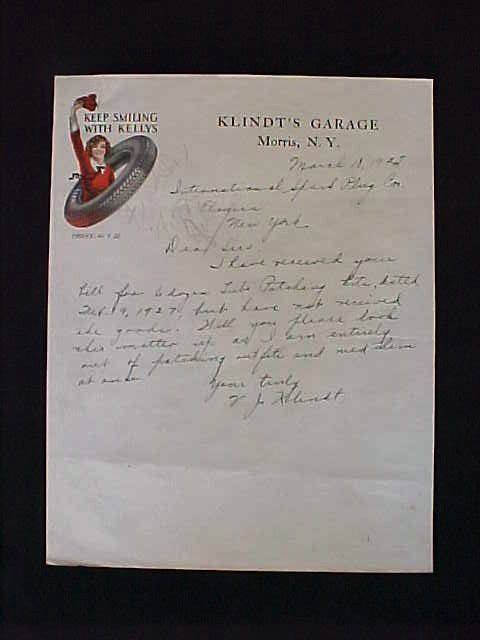 KEEP SMILING
WITH KELLYS
KLINDT'S GARAGE
Morris, N. Y.
March 18, 1927
International Spark Plug Co.
New York
Dear Sirs
I have received your
bill for 6 dozen Tube Patching kits, dated
Feb. 9, 1927, but have not received
the goods. Will you please look
this matter up as I am entirely
out of patching outfits and need them
at once
Yours truly
V J Klindt